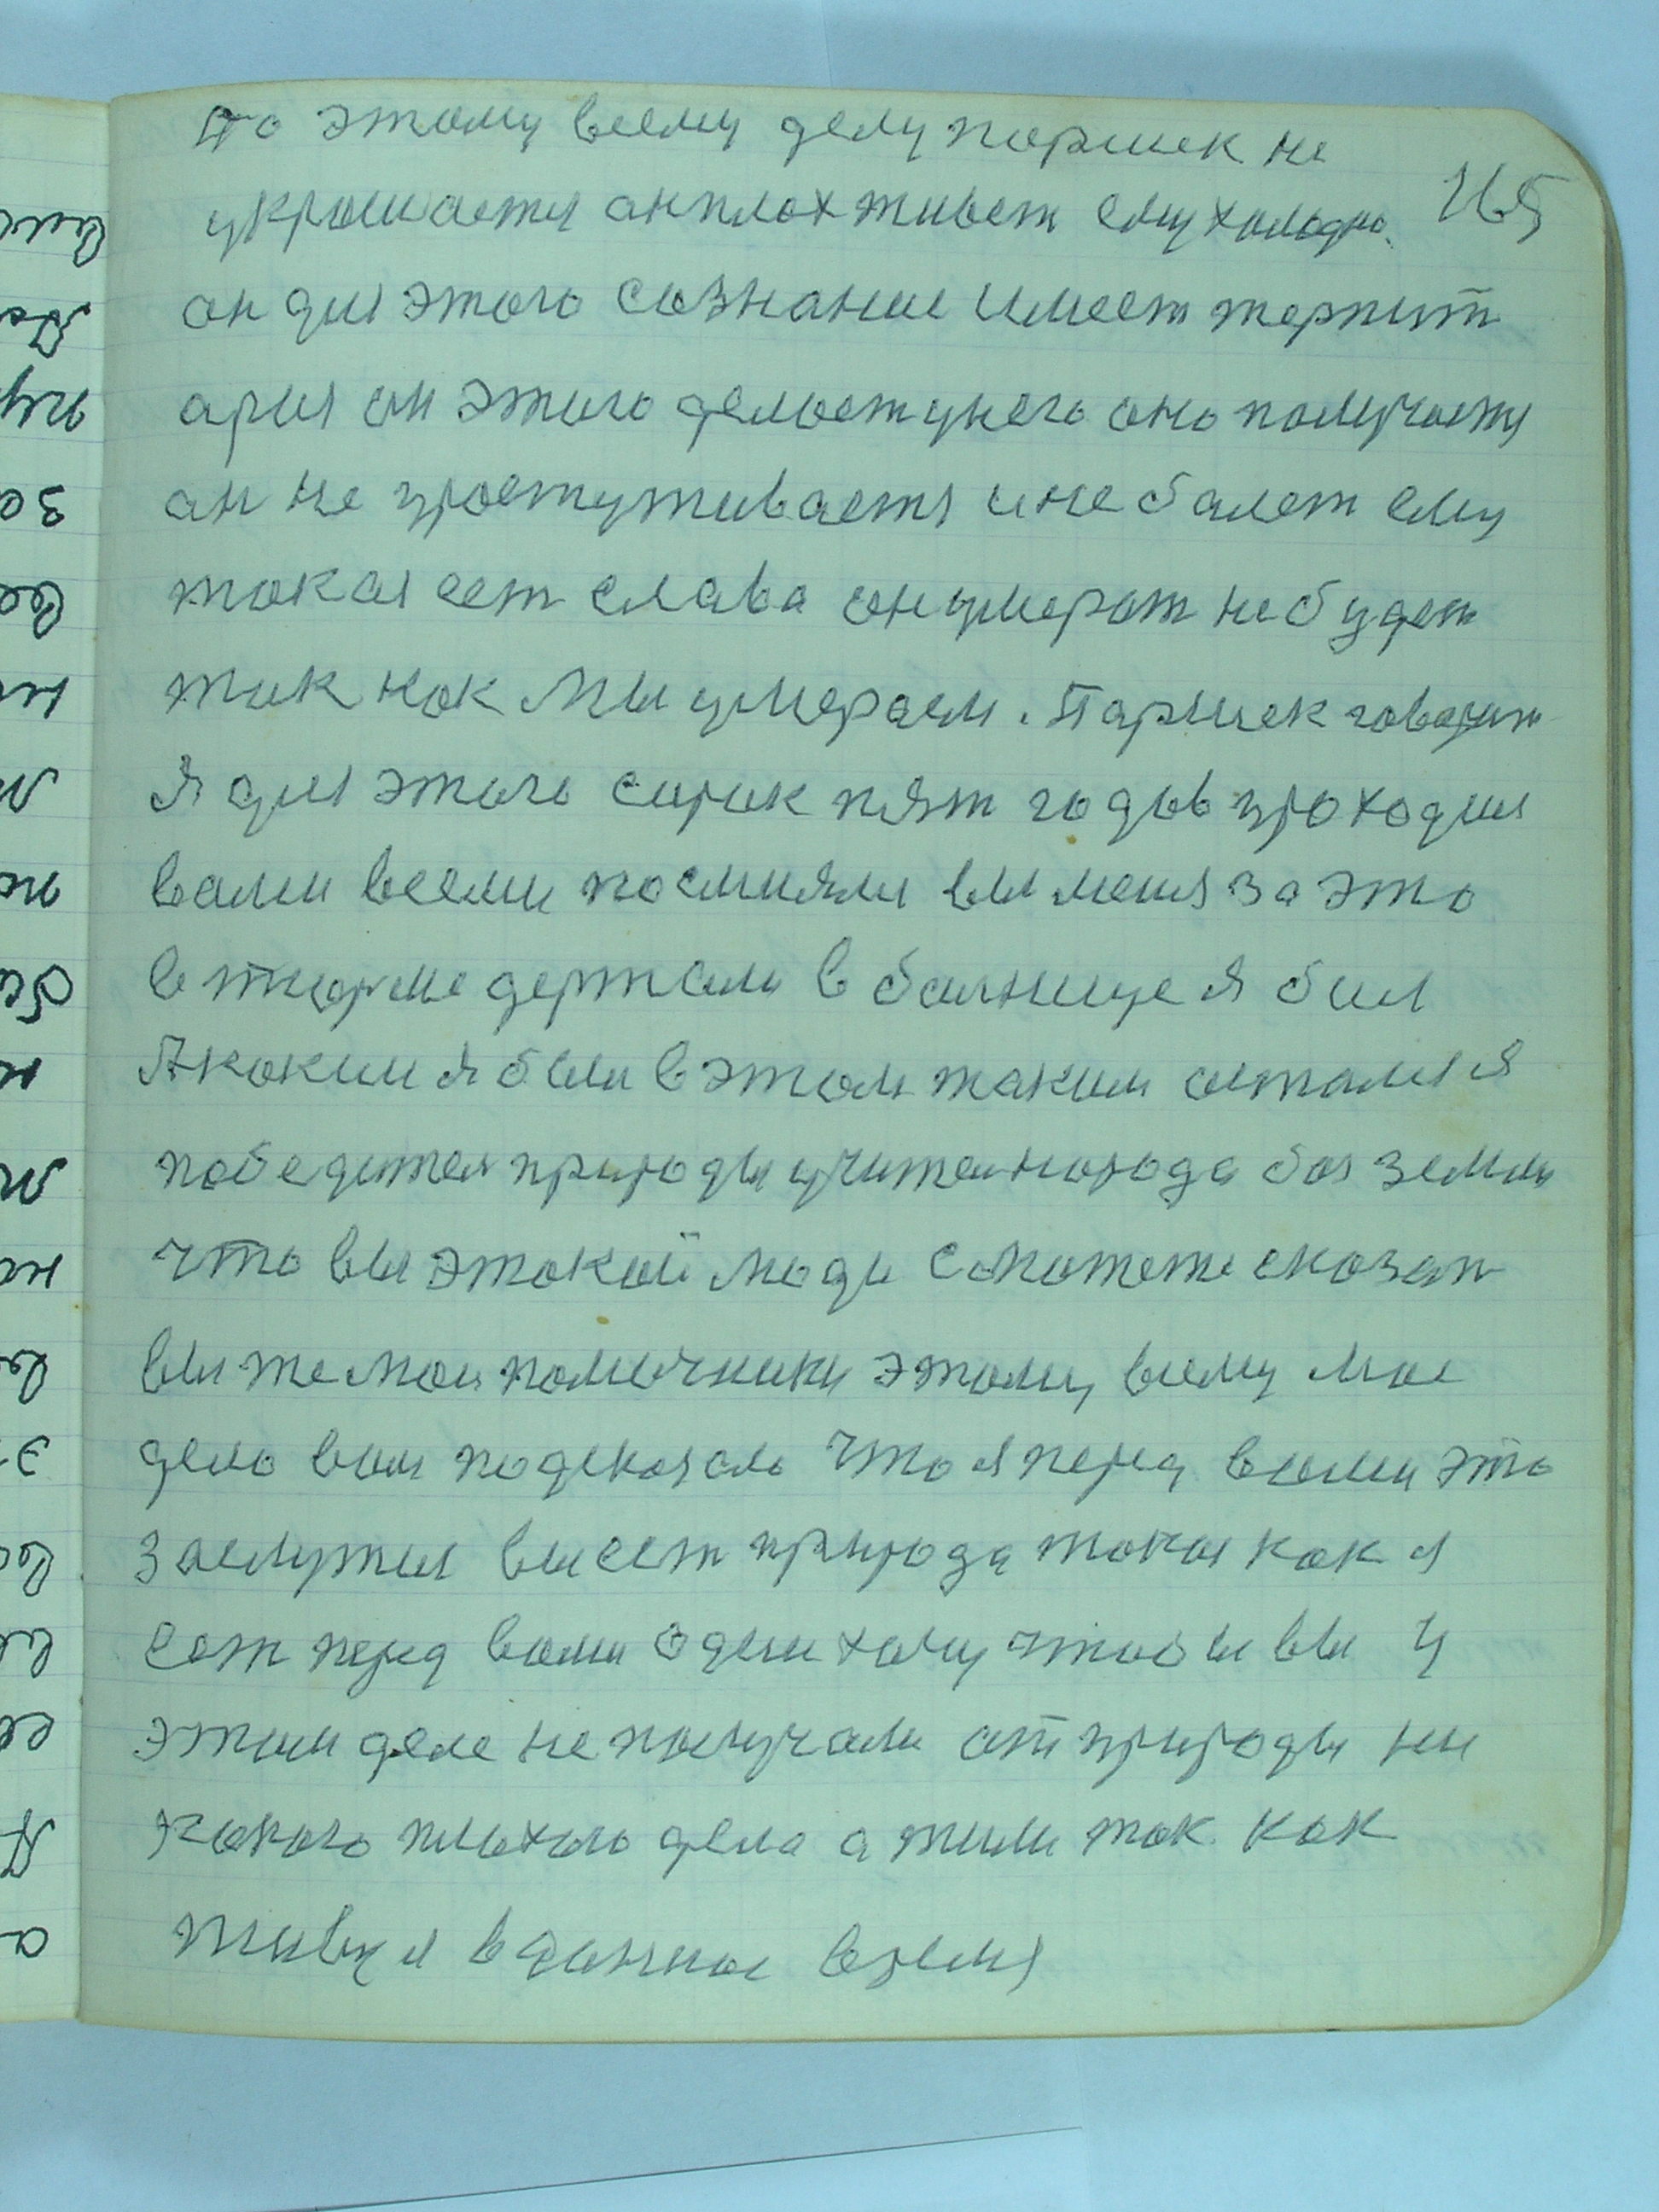 По этому всему делу паршек не
украшается ан плох живет ему холодно. 165
он для этого сознание имеет терпит
а р[...] он этого делает у него оно получается
ан не простуживается и не балеет ему
такая ест слава он умерат не будет
так как мы умераем. Паршек говарит
я для этого сорок пят годов проходил
вами всеми посмияли вы меня за это
в тюрме держали в балнице я бил
А каким я был в этом таким остался я
победител природы учител народа бог земли
что вы этокаи люди сможете сказат
вы же мои помочники этому всему мое
дело вам подсказало что я перед вами это
заслужил вы ест природа такая как я
ест перед вами один хочу чтобы вы у
этим деле не получали от природы ни
какого плохого дела а жили так как
живу я в данное время